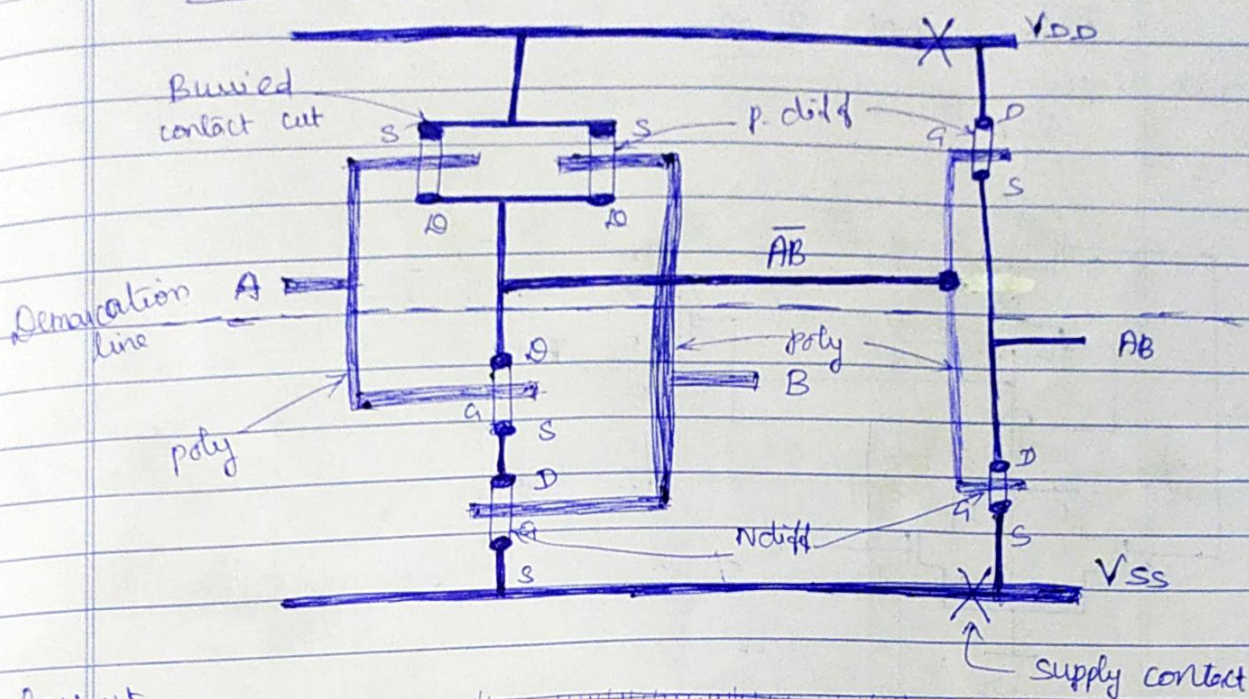 VDD
Buried
contact cut
p. diff
D
G
S
S
S
D
D
A̅B̅
A
Demarcation
line
AB
D
poly
B
G
S
poly
D
D
G
Ndiff
G
S
S
VSS
supply contact